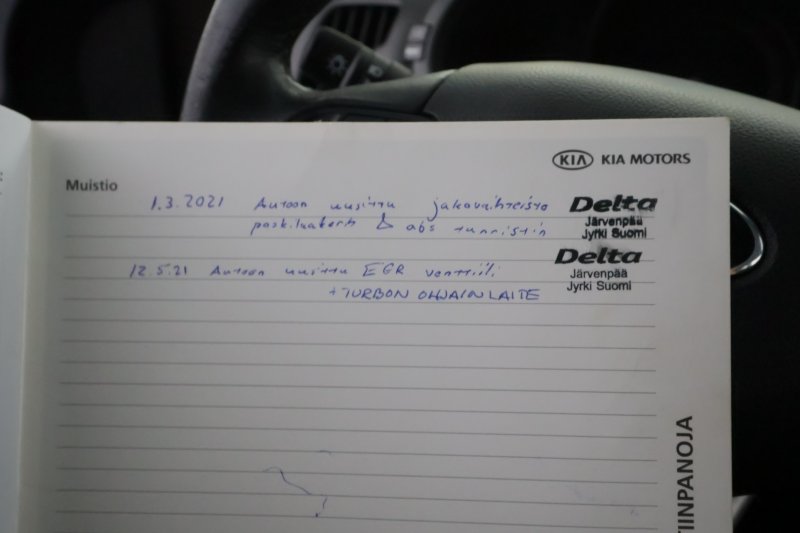 KIA KIA MOTORS
Muistio
1.3.2021 Autoon uusittu jakovaihteisto
Delta
Järvenpää
Jyrki Suomi
& abs tunnistin
12.5.21 Autoon uusittu EGR venttiili
Delta
Järvenpää
Jyrki Suomi
+ TURBON OHJAINLAITE
TIINPANOJA